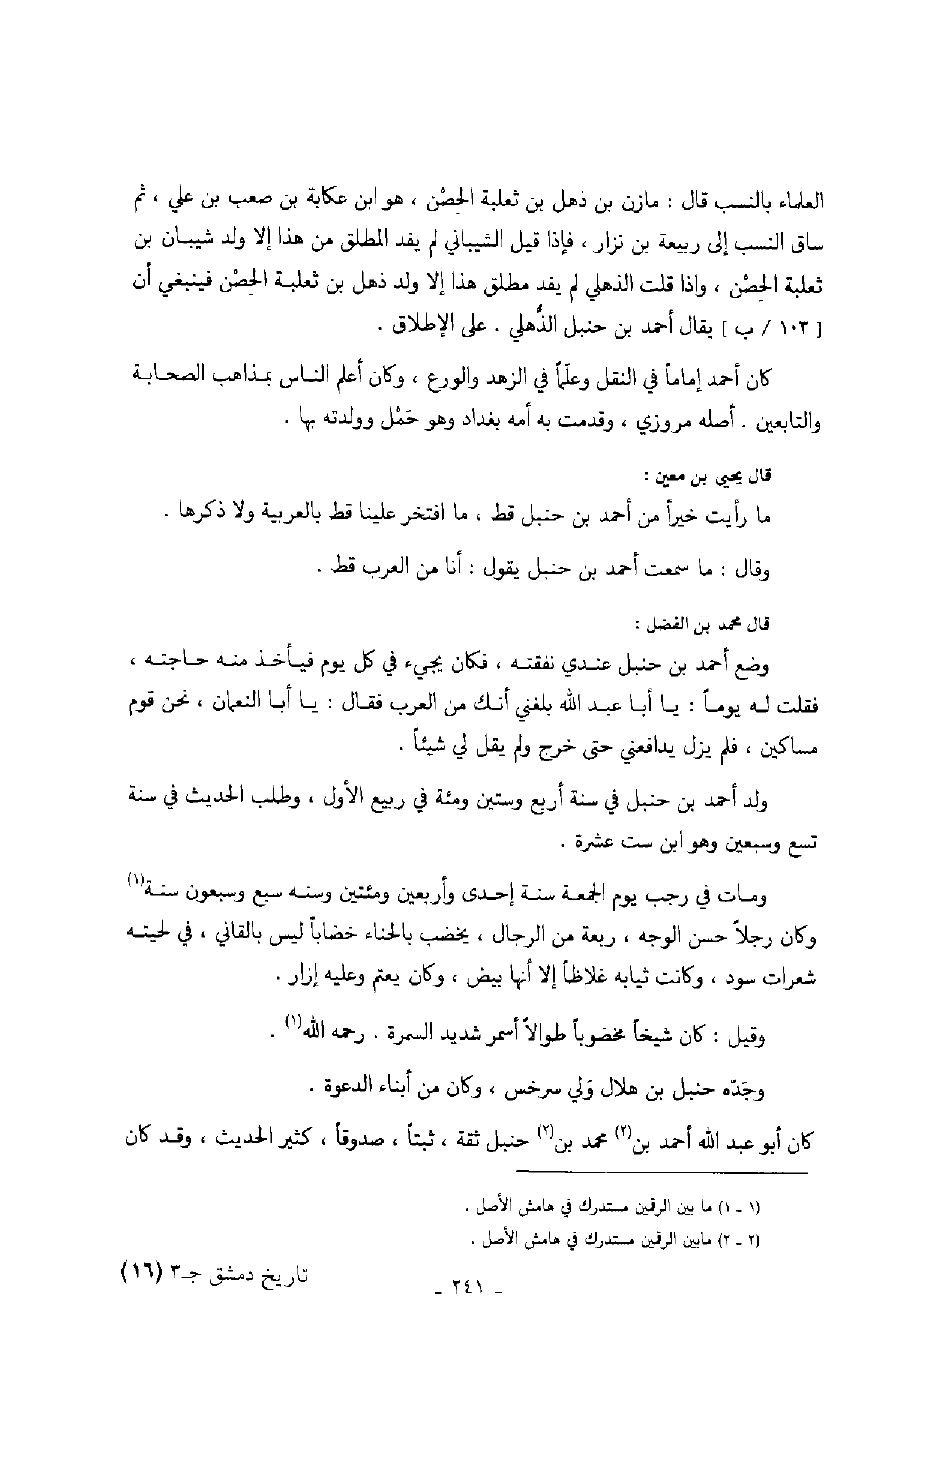 العلماء بالنسب قال : مازن بن ذهل بن ثعلبة الحصْن ، هو ابن عكابة بن صعب بن علي ، ثم
ساق النسب إلى ربيعة بن نزار ، فإذا قيل الشيباني لم يفد المطلق من هذا إلا ولد شيبان بن
ثعلبة الحصْن ، وإذا قلت الذهلي لم يفد مطلق هذا إلا ولد ذهل بن ثعلبة الحصْن فينبغي أن
[ ١٠٣ / ب ] يقال أحمد بن حنبل الذُّهلي . على الإطلاق .
كان أحمد إماماً في النقل وعلماً في الزهد والورع ، وكان أعلم الناس بمذاهب الصحابة
والتابعين . أصله مروزي ، وقدمت به أمه بغداد وهو حَمْل وولدته بها .
قال يحيى بن معين :
ما رأيت خيراً من أحمد بن حنبل قط ، ما افتخر علينا قط بالعربية ولا ذكرها .
وقال : ما سمعت أحمد بن حنبل يقول : أنا من العرب قط .
قال محمد بن الفضل :
وضع أحمد بن حنبل عندي نفقته ، فكان يجيء في كل يوم فيأخذ منه حاجته ،
فقلت له يوماً : يا أبا عبد الله بلغني أنك من العرب فقال : يا أبا النعمان ، نحن قوم
مساكين ، فلم يزل يدافعني حتى خرج ولم يقل لي شيئاً .
ولد أحمد بن حنبل في سنة أربع وستين ومئة في ربيع الأول ، وطلب الحديث في سنة
تسع وسبعين وهو ابن ست عشرة .
ومات في رجب يوم الجمعة سنة إحدى وأربعين ومئتين وسنه سبع وسبعون سنة(١)
وكان رجلاً حسن الوجه ، ربعة من الرجال ، يخضب بالحناء خضاباً ليس بالقاني ، في لحيته
شعرات سود ، وكانت ثيابه غلاظاً إلا أنها بيض ، وكان يعتم وعليه إزار .
وقيل : كان شيخاً مخضوباً طوالاً أسمر شديد السمرة . رحمه الله(١) .
وجدّه حنبل بن هلال وَلي سرخس ، وكان من أبناء الدعوة .
كان أبو عبد الله أحمد بن(٢) محمد بن(٢) حنبل ثقة ، ثبتاً ، صدوقاً ، كثير الحديث ، وقد كان
(١ - ١) ما بين الرقمين مستدرك في هامش الأصل .
(٢ - ٢) مابين الرقمين مستدرك في هامش الأصل .
- ٢٤١ -
تاريخ دمشق جـ٣ (١٦)